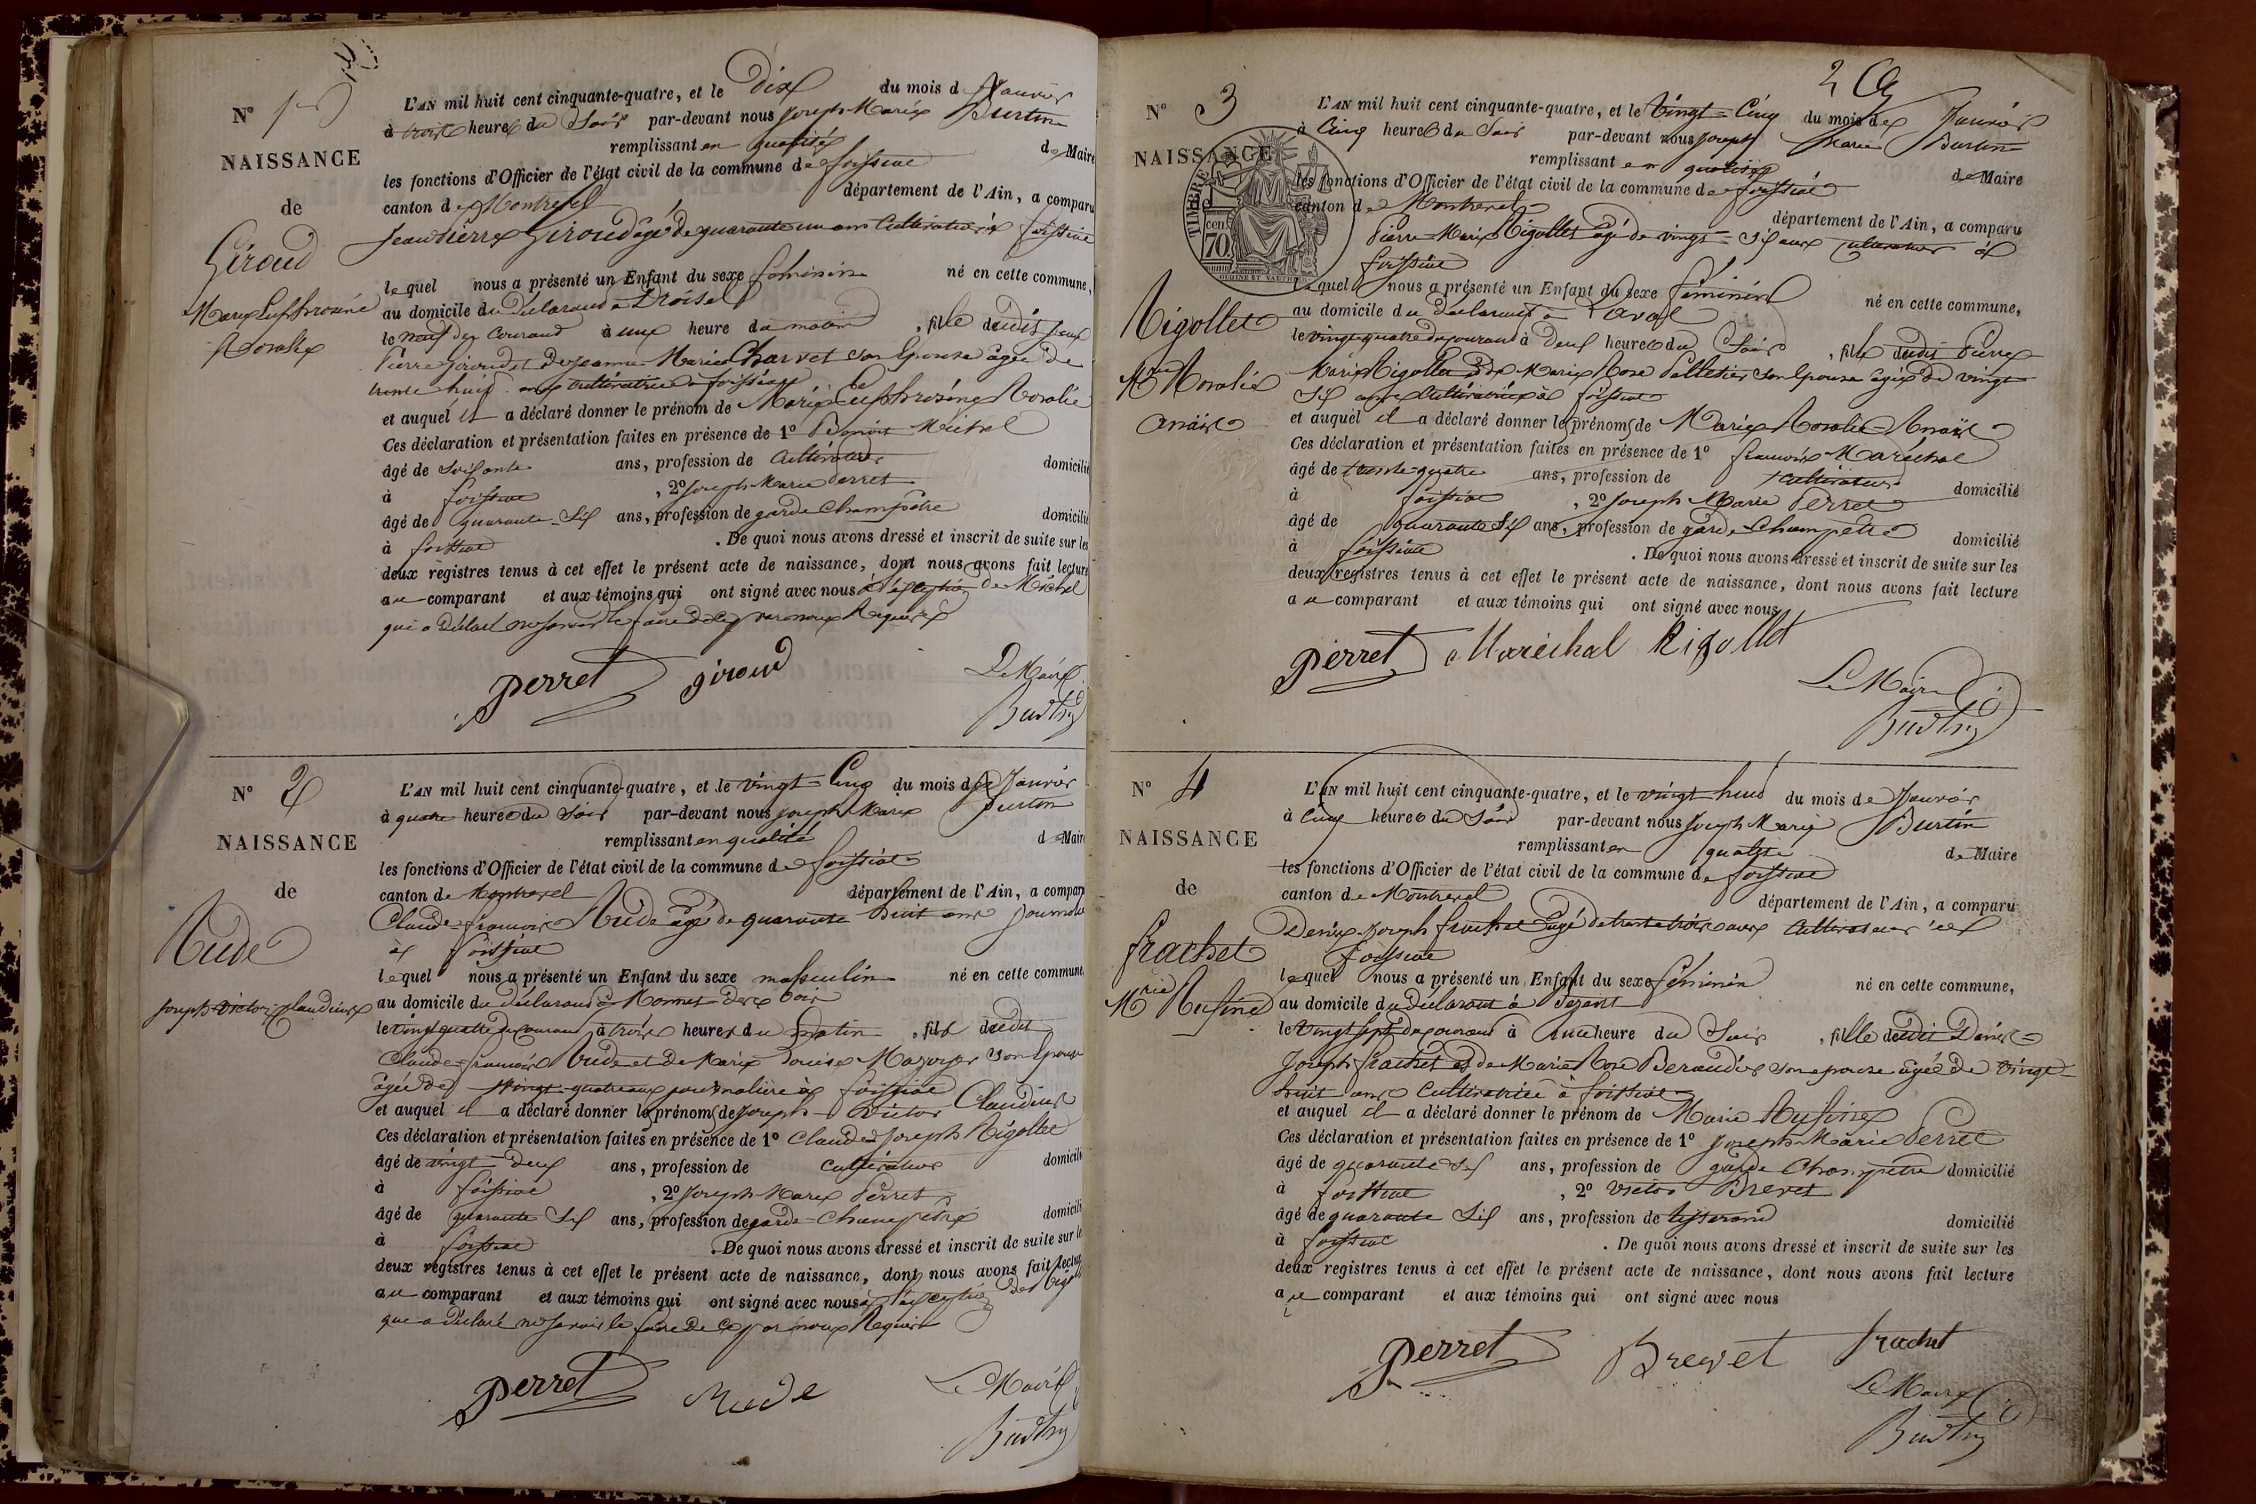 N° 1
NAISSANCE
de
Giroud
Marie Euphrosine
Rosalie
L'AN mil huit cent cinquante-quatre, et le Dix du mois de Janvier
à trois heures du Soir par-devant nous Joseph Marie Burtin
remplissant en qualité de Maire
les fonctions d'Officier de l'état civil de la commune de foissiat
canton de Montrevel département de l'Ain, a comparu
Jean Pierre Giroud âgé de quarante un ans Cultivateur à foissiat
lequel nous a présenté un Enfant du sexe féminin né en cette commune,
au domicile du déclarant à
le neuf du Courant à une heure du matin, fille dudit Jean
Pierre Giroud et de Jeanne Marie Charvet son Epouse âgée de
trente huit ans cultivatrice à foissiat
et auquel il a déclaré donner le prénom de Marie Euphrosine Rosalie
Ces déclaration et présentation faites en présence de 1° Benoit Michel
âgé de Soixante ans, profession de Cultivateur domicilié
à foissiat, 2° Joseph Marie Perret
âgé de quarante Six ans, profession de garde Champêtre domicilié
à foissiat. De quoi nous avons dressé et inscrit de suite sur les
deux registres tenus à cet effet le présent acte de naissance, dont nous avons fait lecture
au comparant et aux témoins qui ont signé avec nous à l'exception de Michel
qui a déclaré ne savoir le faire de ce par nous Requis
Perret giroud
Le Maire
Burtin
N° 2
NAISSANCE
de
Rude
Joseph Victor Claudius
L'AN mil huit cent cinquante-quatre, et le vingt=Cinq du mois de Janvier
à quatre heures du Soir par-devant nous Joseph Marie Burtin
remplissant en qualité de Maire
les fonctions d'Officier de l'état civil de la commune de foissiat
canton de Montrevel département de l'Ain, a comparu
Claude=françois Rude âgé de quarante huit ans Journalier
à foissiat
lequel nous a présenté un Enfant du sexe masculin né en cette commune,
au domicile du déclarant à
le vingt quatre du courant, à trois heures du matin, fils dudit
Claude=françois Rude et de Marie Louise Mazoyer son Epouse
âgée de vingt quatre ans journalière à foissiat
et auquel il a déclaré donner le prénoms de Joseph Victor Claudius
Ces déclaration et présentation faites en présence de 1° Claude Joseph Rigollet
âgé de vingt Deux ans, profession de cultivateur domicilié
à foissiat, 2° Joseph Marie Perret
âgé de quarante Six ans, profession de garde=Champêtre domicilié
à foissiat. De quoi nous avons dressé et inscrit de suite sur les
deux registres tenus à cet effet le présent acte de naissance, dont nous avons fait lecture
au comparant et aux témoins qui ont signé avec nous à l'exception de Rigollet
qui a déclaré ne savoir le faire de ce par nous Requis
Perret Rude
Le Maire
Burtin
2
N° 3
NAISSANCE
TIMBRE
70 cen.
Rigollet
Mie Rosalie
Anaïs
L'AN mil huit cent cinquante-quatre, et le vingt=Cinq du mois de Janvier
à Cinq heures du Soir par-devant nous Joseph Marie Burtin
remplissant en qualité de Maire
les fonctions d'Officier de l'état civil de la commune de foissiat
canton de Montrevel département de l'Ain, a comparu
Pierre Marie Rigollet âgé de vingt=Six ans cultivateur à
foissiat
lequel nous a présenté un Enfant du sexe féminin né en cette commune,
au domicile du déclarant à
le vingt quatre du courant à Deux heures du Soir, fille dudit Pierre
Marie Rigollet et de Marie Rose Pelletier son Epouse âgée de vingt
Six ans Cultivatrice à foissiat
et auquel il a déclaré donner le prénoms de Marie Rosalie=Anaïs
Ces déclaration et présentation faites en présence de 1° françois Maréchal
âgé de trente quatre ans, profession de cultivateur domicilié
à foissiat, 2° Joseph Marie Perret
âgé de quarante Six ans, profession de garde=Champêtre domicilié
à foissiat. De quoi nous avons dressé et inscrit de suite sur les
deux registres tenus à cet effet le présent acte de naissance, dont nous avons fait lecture
au comparant et aux témoins qui ont signé avec nous
Perret Maréchal Rigollet
Le Maire
Burtin
N° 4
NAISSANCE
de
frachet
Mrie Rufine
L'AN mil huit cent cinquante-quatre, et le vingt huit du mois de Janvier
à Cinq heures du Soir par-devant nous Joseph Marie Burtin
remplissant en qualité de Maire
les fonctions d'Officier de l'état civil de la commune de foissiat
canton de Montrevel département de l'Ain, a comparu
Denis Joseph frachet âgé de trente trois ans Cultivateur à
foissiat
lequel nous a présenté un Enfant du sexe féminin né en cette commune,
au domicile du déclarant à
le vingt sept du courant à Une heure du Soir, fille dudit Denis=
Joseph frachet et de Marie Rose son epouse âgée de vingt=
huit ans cultivatrice à foissiat
et auquel il a déclaré donner le prénom de Marie Rufine
Ces déclaration et présentation faites en présence de 1° Joseph Marie Perret
âgé de quarante Six ans, profession de garde Champêtre domicilié
à foissiat, 2° Victor Brevet
âgé de quarante Six ans, profession de tisserand domicilié
à foissiat. De quoi nous avons dressé et inscrit de suite sur les
deux registres tenus à cet effet le présent acte de naissance, dont nous avons fait lecture
au comparant et aux témoins qui ont signé avec nous
Perret Brevet frachet
Le Maire
Burtin